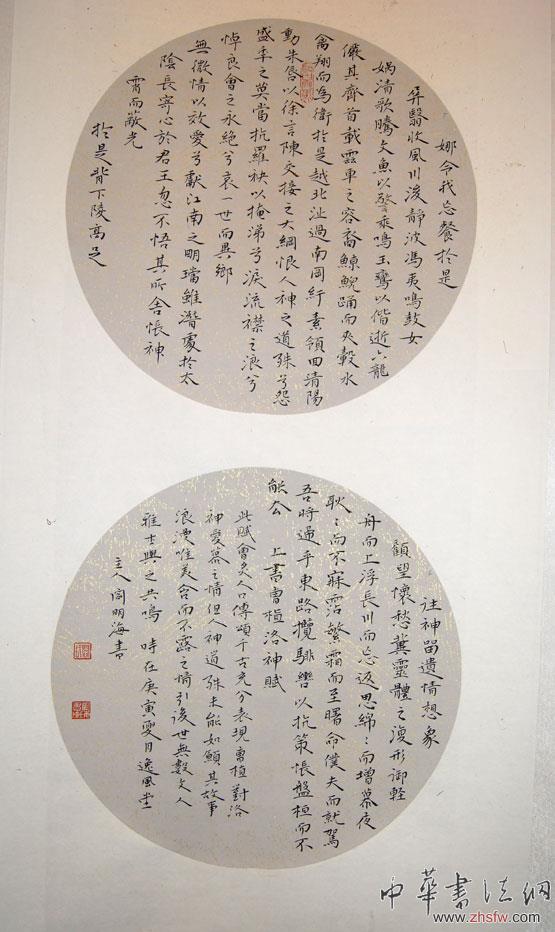 娜令我忘餐於是
屏翳收風川波靜波馮夷鳴鼓女
媧清歌騰文魚以警乘鳴玉鸞以偕逝六龍
儼其齊首載雲車之容裔鯨鯢踊而夾轂水
禽翔而為衛於是越北沚過南岡紆素領回清陽
動朱唇以徐言陳交接之大綱恨人神之道殊兮怨
盛年之莫當抗羅袂以掩涕兮淚流襟之浪兮
悼良會之永絕兮哀一世而異鄉
無微情以效愛兮獻江南之明璫雖潛處於太
陰長寄心於君王忽不悟其所舍悵神
霄而蔽光
於是背下陵高足
往神留遺情想象
顧望懷愁冀靈體之復形御輕
舟而上浮長川而忘返思綿〻而增慕夜
耿〻而不寐霑繁霜而至曙命僕夫而就駕
吾將歸乎東路攬騑轡以抗策悵盤桓而不
能去 上書曹植洛神賦
此賦膾炙人口傳頌千古充分表現曹植對洛
神愛慕之情但人神道殊未能如願其故事
浪漫唯美含而不露之情引後世無數文人
雅士與之共鳴 時在庚寅夏月逸風堂
主人周明海書
中華書法網
www.zhsfw.com